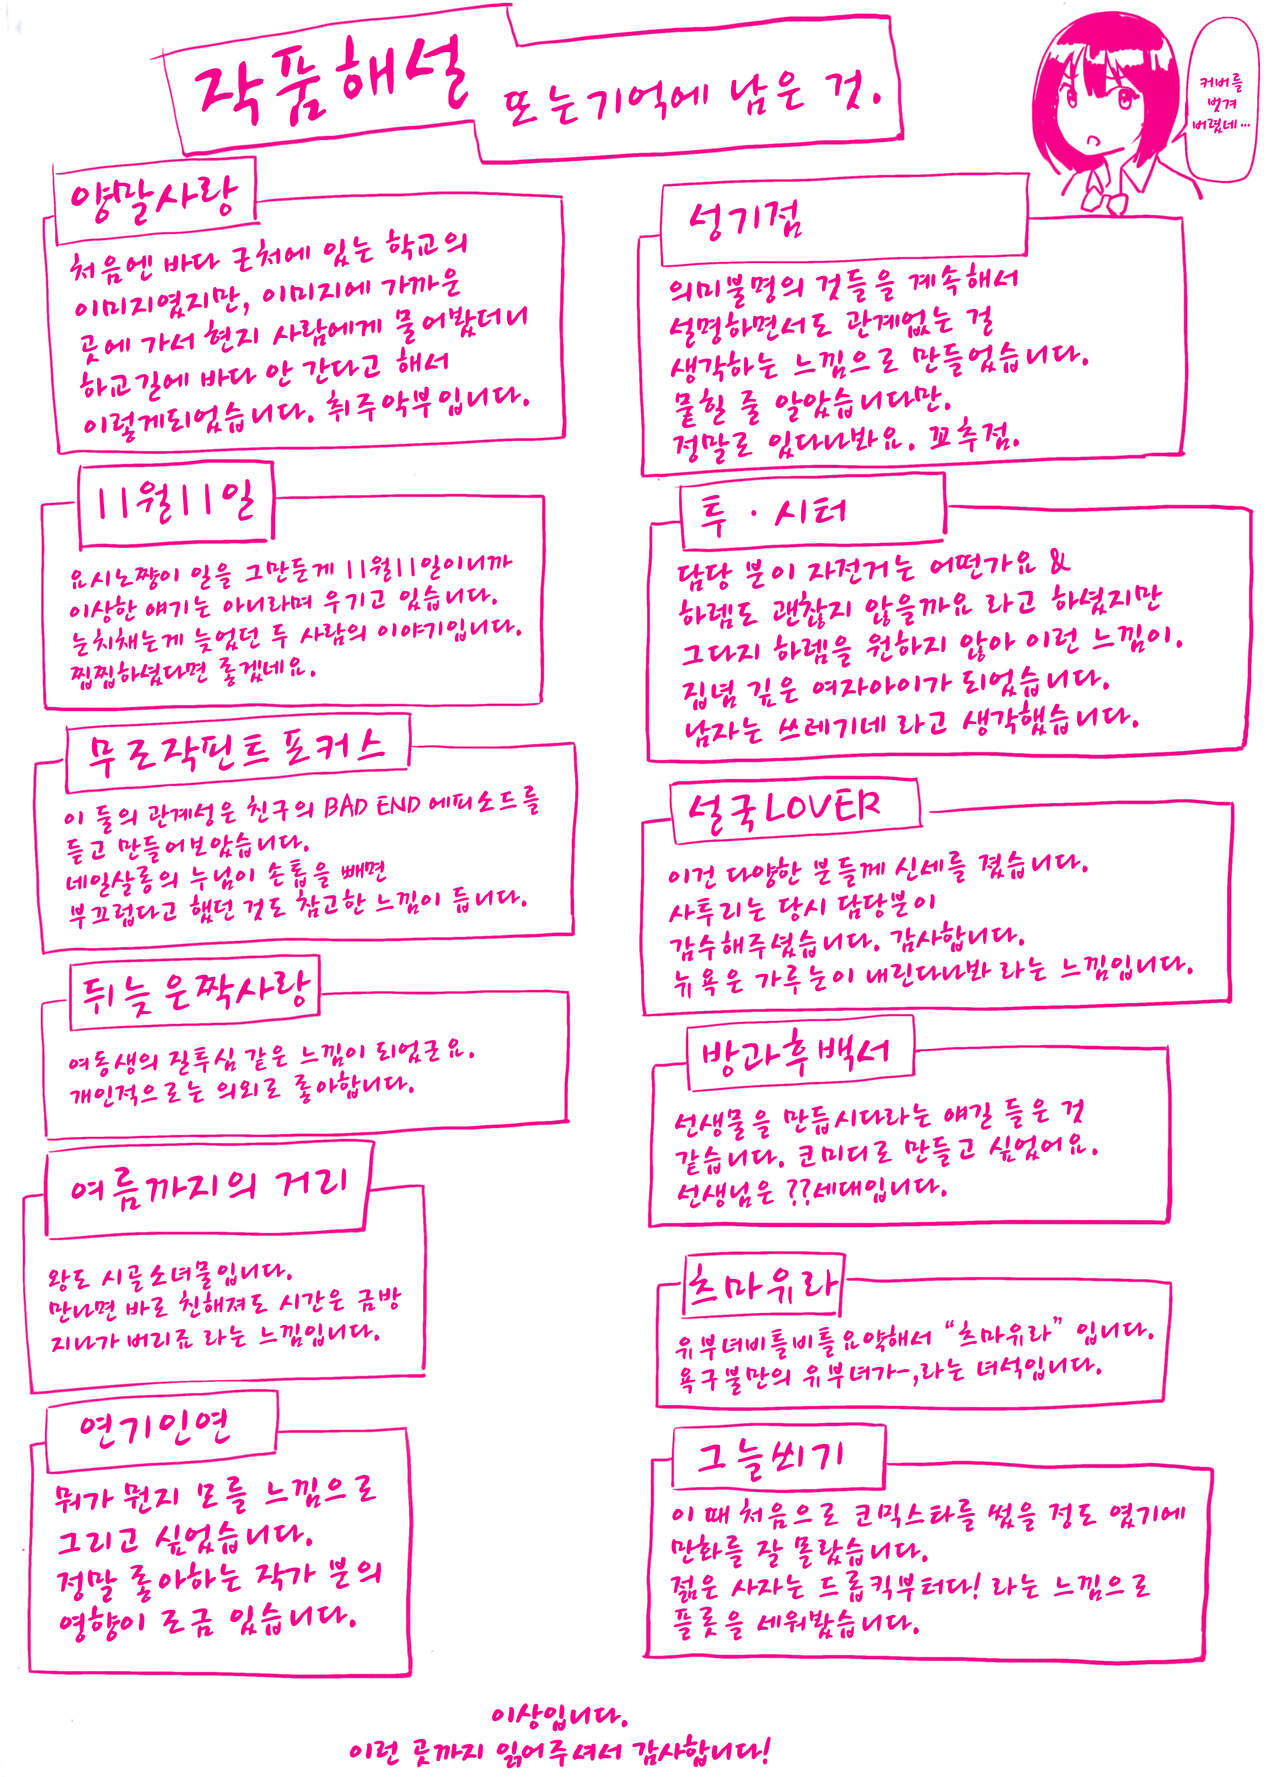 작품해설
또는기억에 남은 것.
커버를
벗겨
버렸네…
양말사랑
처음엔 바다 근처에 있는 학교의
이미지였지만, 이미지에 가까운
곳에 가서 현지 사람에게 물어봤더니
하교길에 바다 안 간다고 해서
이렇게되었습니다. 취주악부입니다.
11월11일
요시노쨩이 일을 그만둔게 11월11일이니까
이상한 얘기는 아니라며 우기고 있습니다.
눈치채는게 늦었던 두 사람의 이야기입니다.
찝찝하셨다면 좋겠네요.
무로작핀트포커스
이 둘의 관계성은 친구의 BAD END 에피소드를
듣고 만들어보았습니다.
네일살롱의 누님이 손톱을 빼면
부끄럽다고 했던 것도 참고한 느낌이 듭니다.
뒤늦은짝사랑
여동생의 질투심 같은 느낌이 되었군요.
개인적으로는 의외로 좋아합니다.
여름까지의 거리
왕도 시골소녀물입니다.
만나면 바로 친해져도 시간은 금방
지나가 버리죠 라는 느낌입니다.
연기인연
뭐가 뭔지 모를 느낌으로
그리고 싶었습니다.
정말 좋아하는 작가 분의
영향이 조금 있습니다.
성기점
의미불명의 것들을 계속해서
설명하면서도 관계없는 걸
생각하는 느낌으로 만들었습니다.
묻힐 줄 알았습니다만.
정말로 있다나봐요. 꼬추점.
투·시터
담당 분이 자전거는 어떤가요 &
하렘도 괜찮지 않을까요 라고 하셨지만
그다지 하렘을 원하지 않아 이런 느낌이.
집념 깊은 여자아이가 되었습니다.
남자는 쓰레기네 라고 생각했습니다.
설국LOVER
이건 다양한 분들께 신세를 졌습니다.
사투리는 당시 담당분이
감수해주셨습니다. 감사합니다.
뉴욕은 가루눈이 내린다나봐 라는 느낌입니다.
방과후백서
선생물을 만듭시다라는 얘길 들은 것
같습니다. 코미디로 만들고 싶었어요.
선생님은 ??세대입니다.
츠마유라
유부녀비틀비틀요약해서 “츠마유라” 입니다.
욕구불만의 유부녀가-,라는 녀석입니다.
그늘삐기
이 때 처음으로 코믹스타를 썼을 정도 였기에
만화를 잘 몰랐습니다.
젊은 사자는 드롭킥부터다! 라는 느낌으로
플롯을 세워봤습니다.
이상입니다.
이런 곳까지 읽어주셔서 감사합니다!